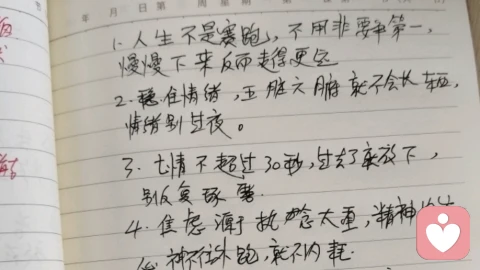 年 月 日 第 周 星期
1、人生不是赛跑，不用非要争第一，
慢慢下来反而走得更远
2、稳住情绪，五脏六腑就不会长结，
情绪别过夜。
3、七情不超过30秒，过了就放下，
别反复琢磨
4、焦虑源于执念太重，精神
神不往外跑，就不内耗.